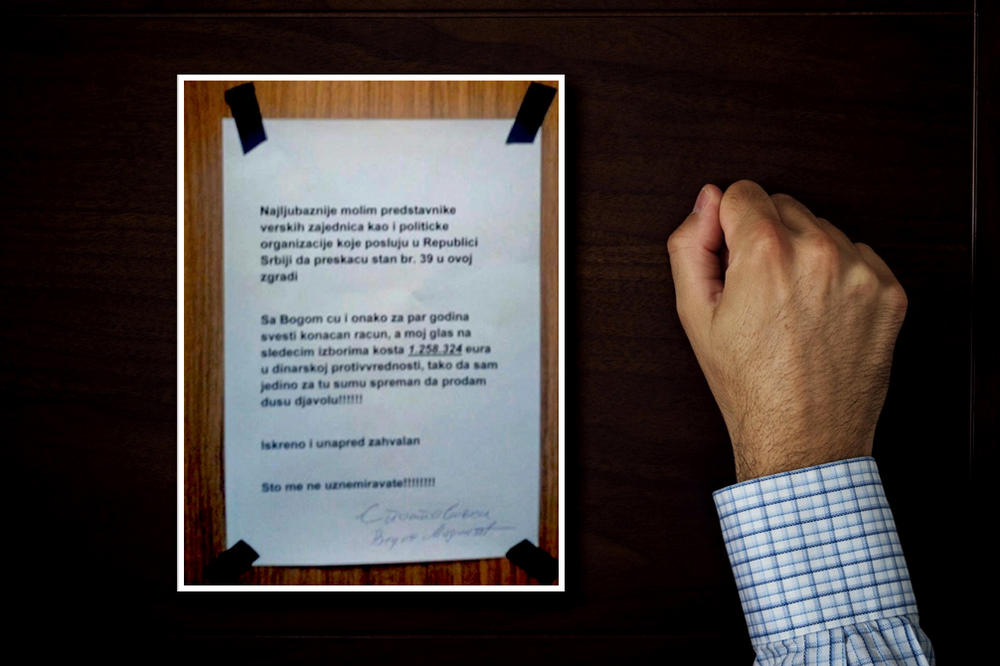 Najljubaznije molim predstavnike
verskih zajednica kao i politicke
organizacije koje posluju u Republici
Srbiji da preskacu stan br. 39 u ovoj
zgradi
Sa Bogom cu i onako za par godina
svesti konacan racun, a moj glas na
sledecim izborima kosta 1.258.324 eura
u dinarskoj protivvrednosti, tako da sam
jedino za tu sumu spreman da prodam
dusu djavolu!!!!!!
Iskreno i unapred zahvalan
Sto me ne uznemiravate!!!!!!!!